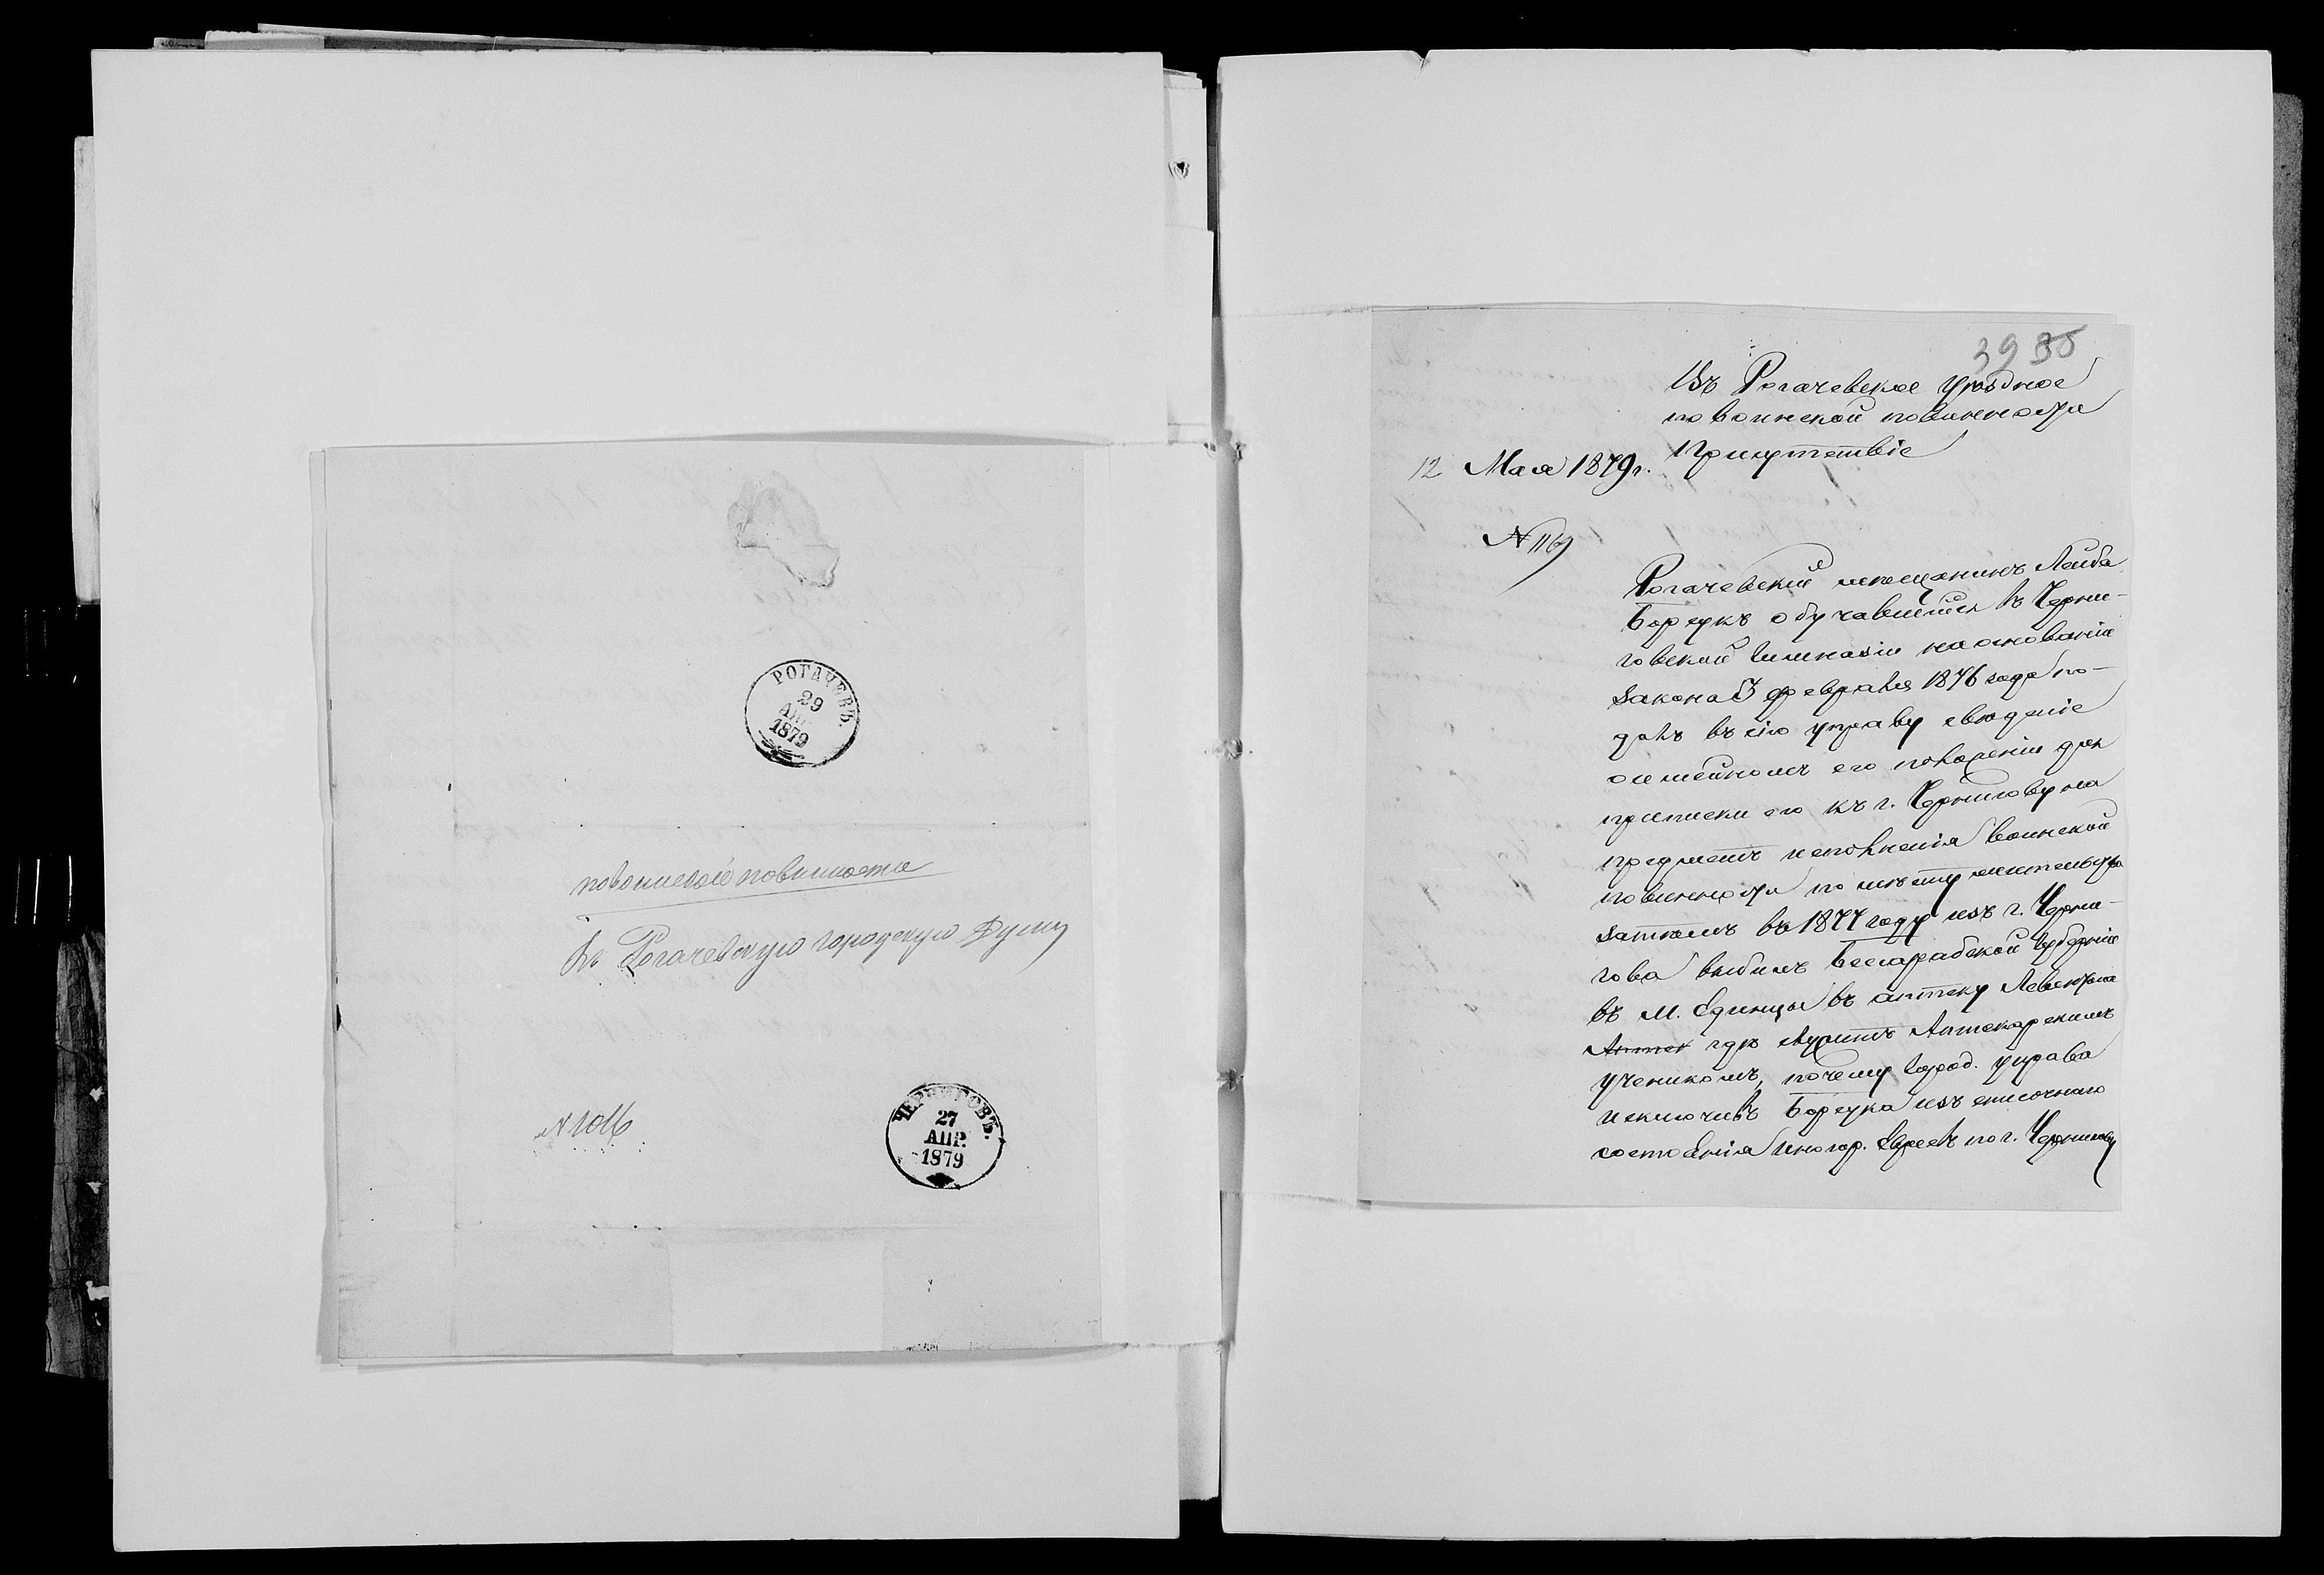 РОГАЧЕВЪ.
29
АПР.
1879
по воинской повинности
Въ Рогачевскую городскую Думу
N 1016
ЧЕРНИГОВЪ.
27
АПР.
1879
39 38
Въ Рогачевское уѣздное
по воинской повинности
Присутствіе
12 Мая 1879 г.
N 1169
Рогачевскій мѣщанинъ Лейба
Борсукъ обучавшійся въ Черни-
говской Гимназіи на основаніи
закона 3 февраля 1876 года по-
далъ въ сію управу свѣденіе
о семейномъ его положеніи для
приписки его къ г. Чернигову на
предметъ исполненія воинской
повинности по мѣсту жительства
затѣмъ въ 1877 году изъ г. Черни-
гова выбылъ Бессарабской губерніи
въ М. Единцы въ аптеку
Аптек гдѣ служитъ Аптекарскимъ
ученикомъ, почему Город. управа
исключивъ Борсука изъ списочнаго
состоянія иногор. Евреевъ по г. Чернигову